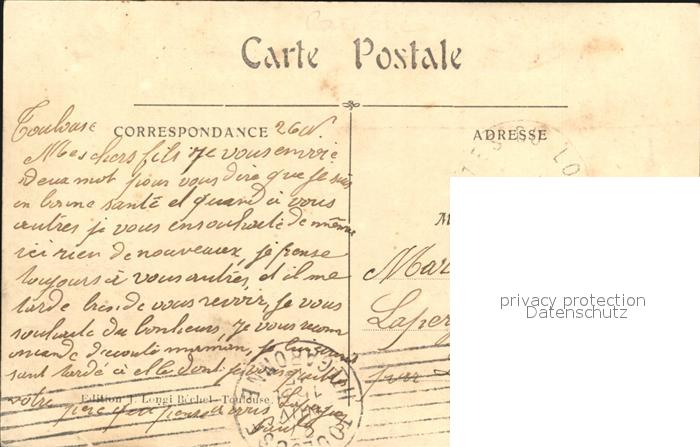 Carte Postale
CORRESPONDANCE
ADRESSE
Toulouse 26
Mes chers fils Je vous envoie
deux mot pour vous dire que Je suis
en bonne santé et quand à vous
autres je vous en souhaite de même
ici rien de nouveaux, je pense
toujours à vous autres, et il me
tarde bres de vous revoir, Je vous
souhaite du bonheur, Je vous recom
mande d'ecouté maman,
sant tardé à elle dont je vous quitte
votre père qui pense à vous
Edition T. Longi Béchel. Toulouse.
Mar
Laper
privacy protection
Datenschutz